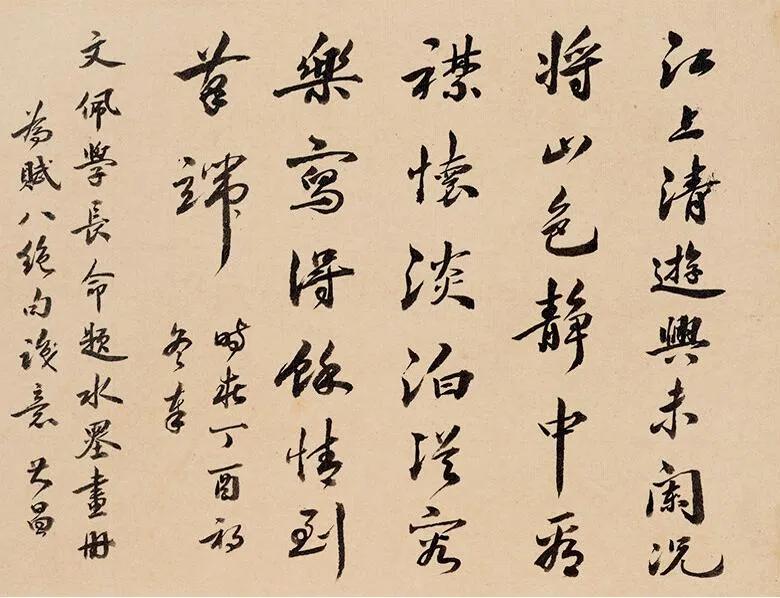 江上清遊興未闌況
將山色靜中看
襟懷淡泊從容
樂寫得餘情到
筆端
時在丁酉初
冬奉
文佩學長命題水墨畫冊
為賦八絕句意昌